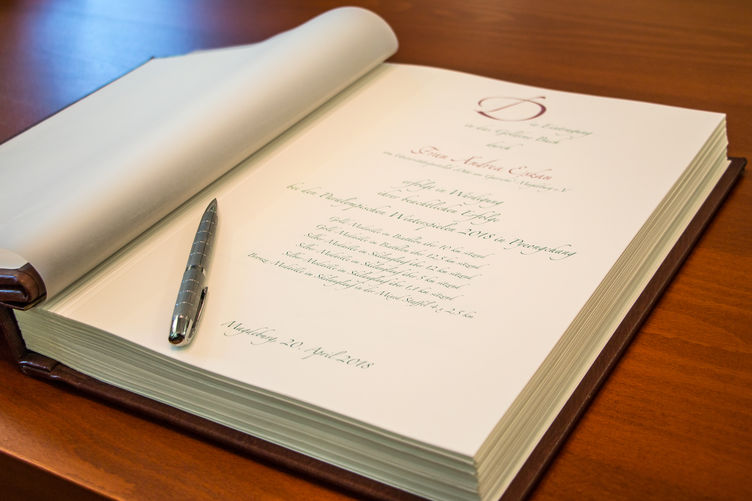 Die Eintragung
in das Goldene Buch
durch
Frau Andrea Eskau
erfolgte in Würdigung
ihrer beachtlichen Erfolge
bei den Paralympischen Winterspielen 2018 in Pyeongchang
Gold-Medaille im Biathlon über 10 km sitzend
Gold-Medaille im Biathlon über 12,5 km sitzend
Silber-Medaille im Skilanglauf über 12 km sitzend
Silber-Medaille im Skilanglauf über 5 km sitzend
Silber-Medaille im Skilanglauf über 1,1 km sitzend
Bronze-Medaille im Skilanglauf in der Mixed-Staffel 4 x 2,5 km
Magdeburg, 20. April 2018